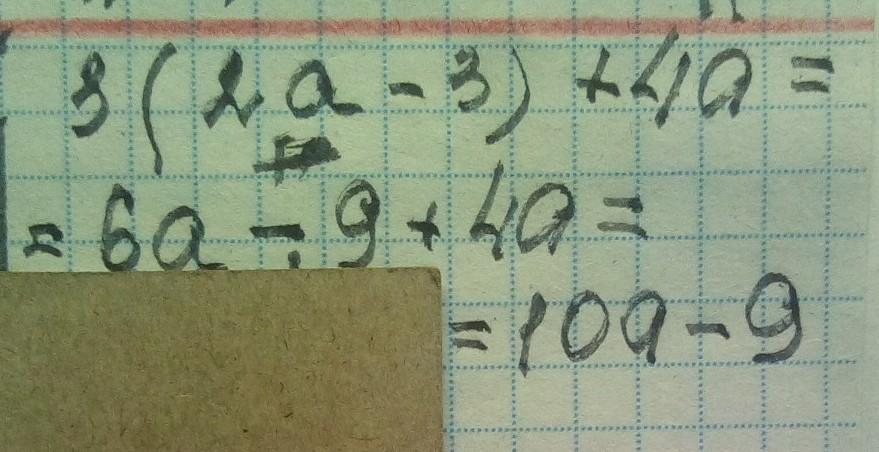 3(2a-3)+4a=
=6a-9+4a=
=10a-9